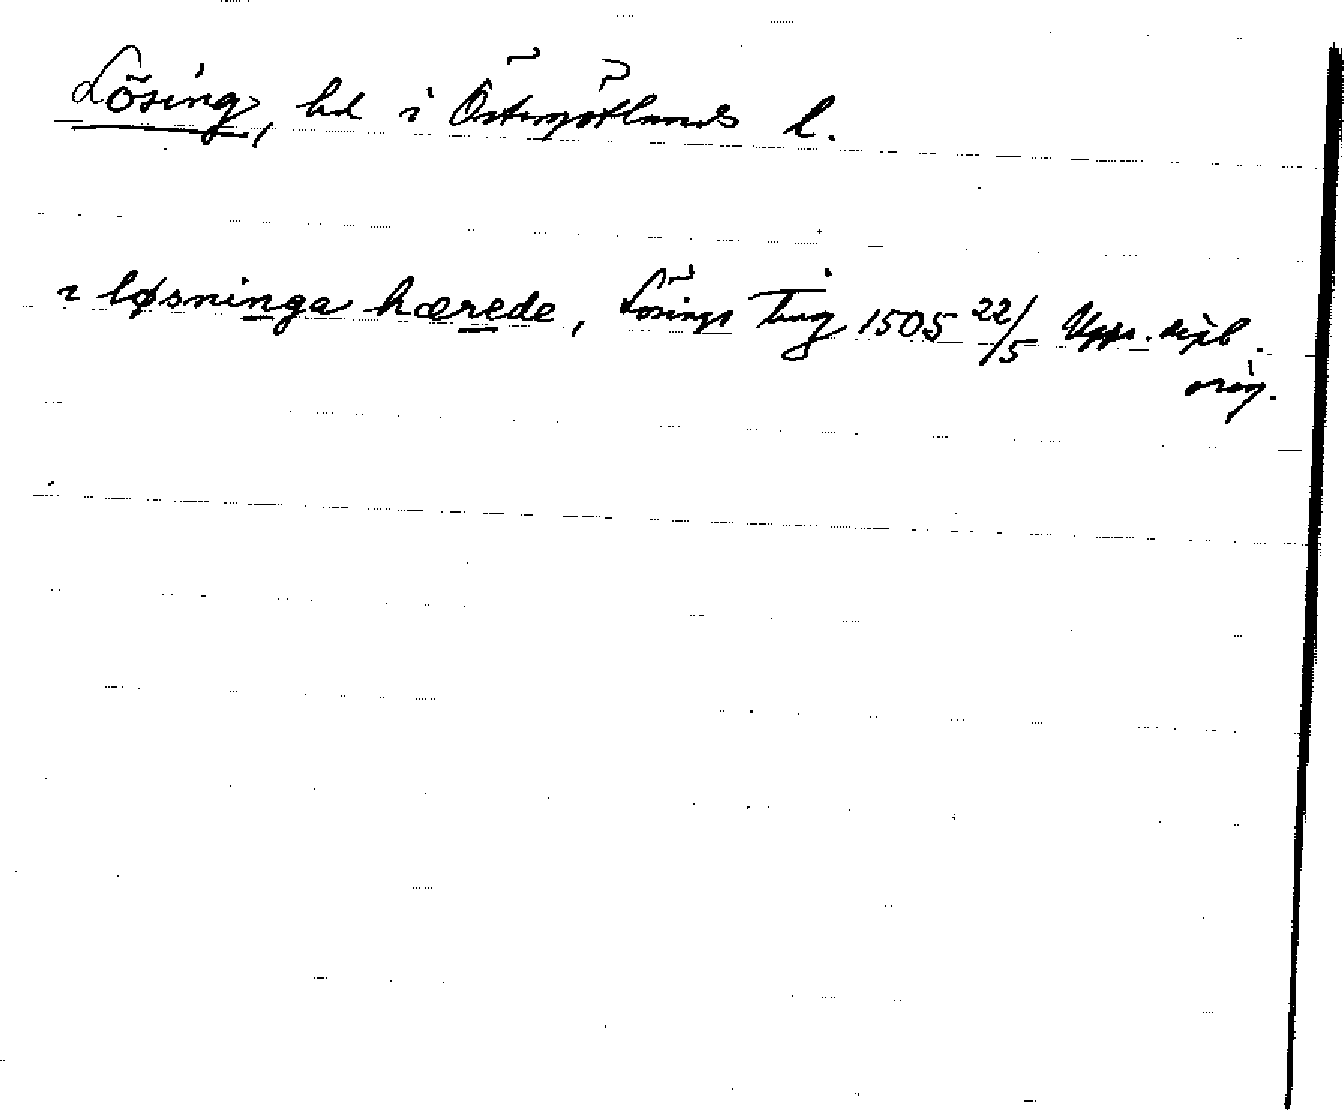 Lösing, hd i Östergötlands l.
i løsninga hærede, Lösings Ting 1505 22/5 Upps. dipl.
orig.